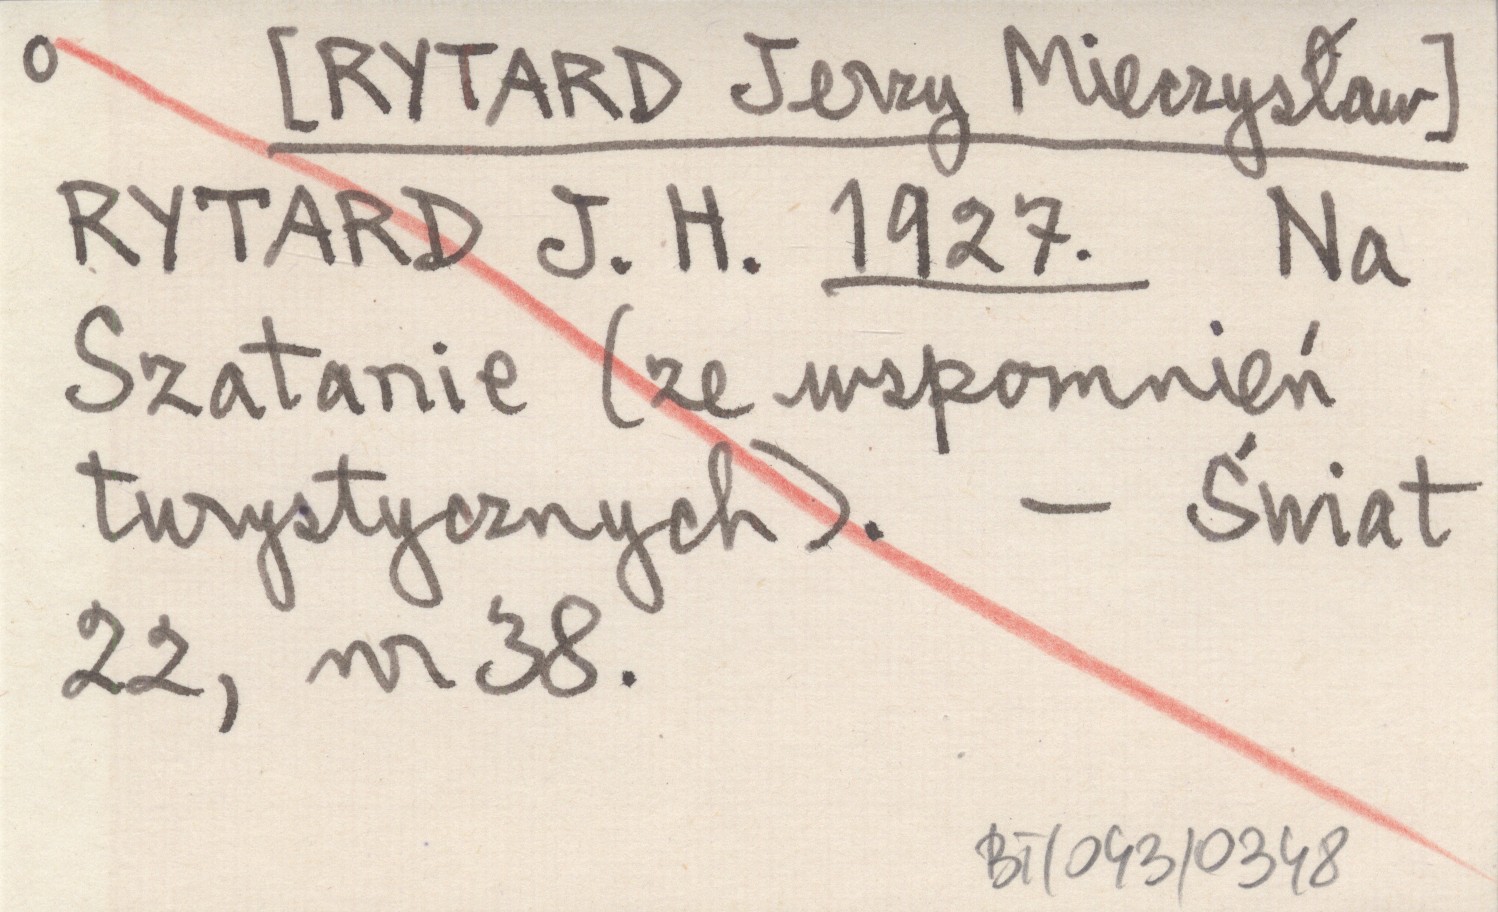 o [RYTARD Jerzy Mieczysław]
RYTARD J. H. 1927. Na
Szatanie (ze wspomnień
turystycznych). – Świat
22, nr 38.
BT/043/0348